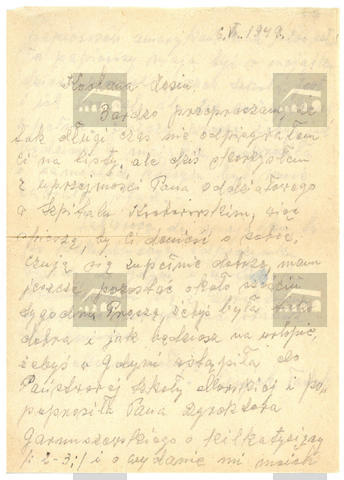 6.VI.1949.
Kochana Lesiu.
Bardzo przepraszam, że
tak długi czas nie odpisywałem
Ci na listy, ale dziś skorzystałem
z uprzejmości Pana oddziałowego
w Szpitalu, więc
spieszę, by Ci donieść o sobie.
Czuję się zupełnie dobrze, mam
jeszcze pozostać około sześciu
tygodni. Proszę, żebyś była tak
dobra i jak będziesz na urlopie,
żebyś w Gdyni wstąpiła do
Państwowej Szkoły Morskiej i po,
poprosiła Pana Dyrektora
Garnuszewskiego o kilka tysięcy
/: 2-3 :/ i o wydanie mi moich